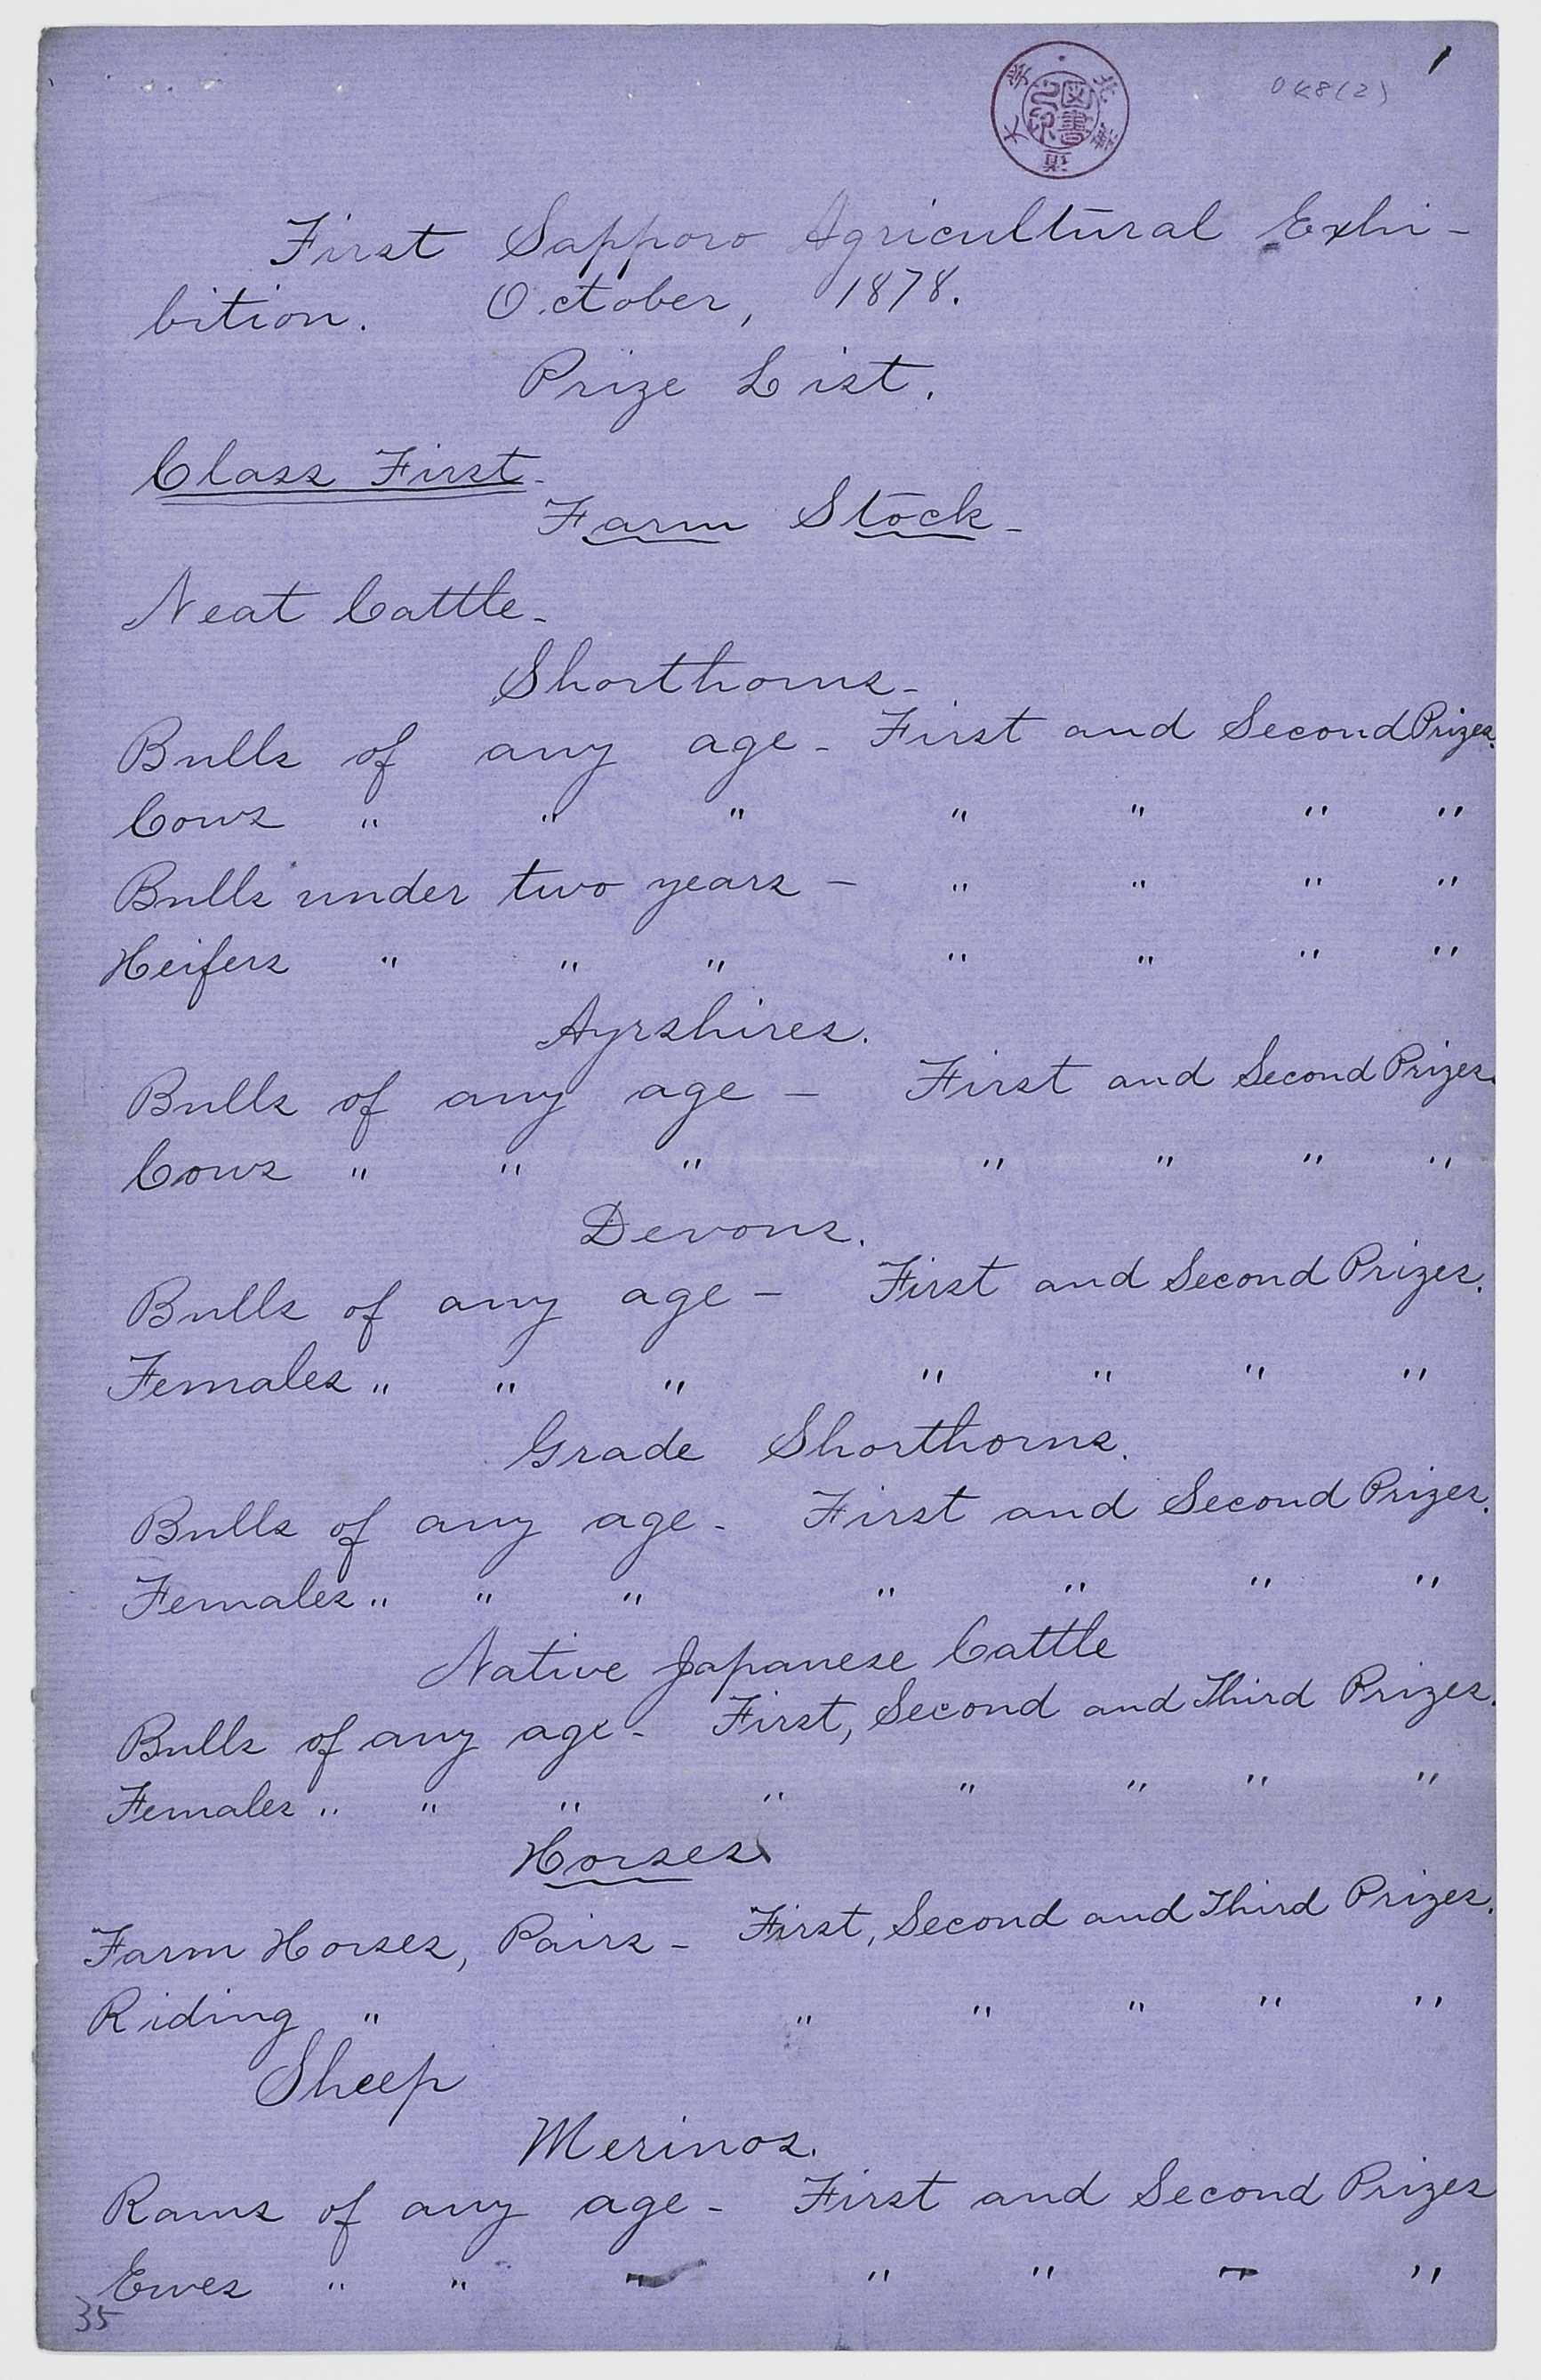 1
048(2)
北海道大學
図書之印
First Sapporo Agricultural Exhi-
bition. October, 1878.
Prize List.
Class First.
Farm Stock-
Neat Cattle-
Shorthorns-
Bulls of any age- First and Second Prizes.
Cows " " " " " " "
Bulls under two years- " " " "
Heifers " " " " " " "
Ayrshires.
Bulls of any age- First and Second Prizes.
Cows " " " " " " "
Devons.
Bulls of any age- First and Second Prizes.
Females " " " " " " "
Grade Shorthorns.
Bulls of any age- First and Second Prizes.
Females " " " " " " "
Native Japanese Cattle
Bulls of any age- First, Second and Third Prizes.
Females " " " " " " " "
Horses.
Farm Horses, Pairs- First, Second and Third Prizes.
Riding " " " " " "
Sheep
Merinos.
Rams of any age- First and Second Prizes
Ewes " " " " " " "
35